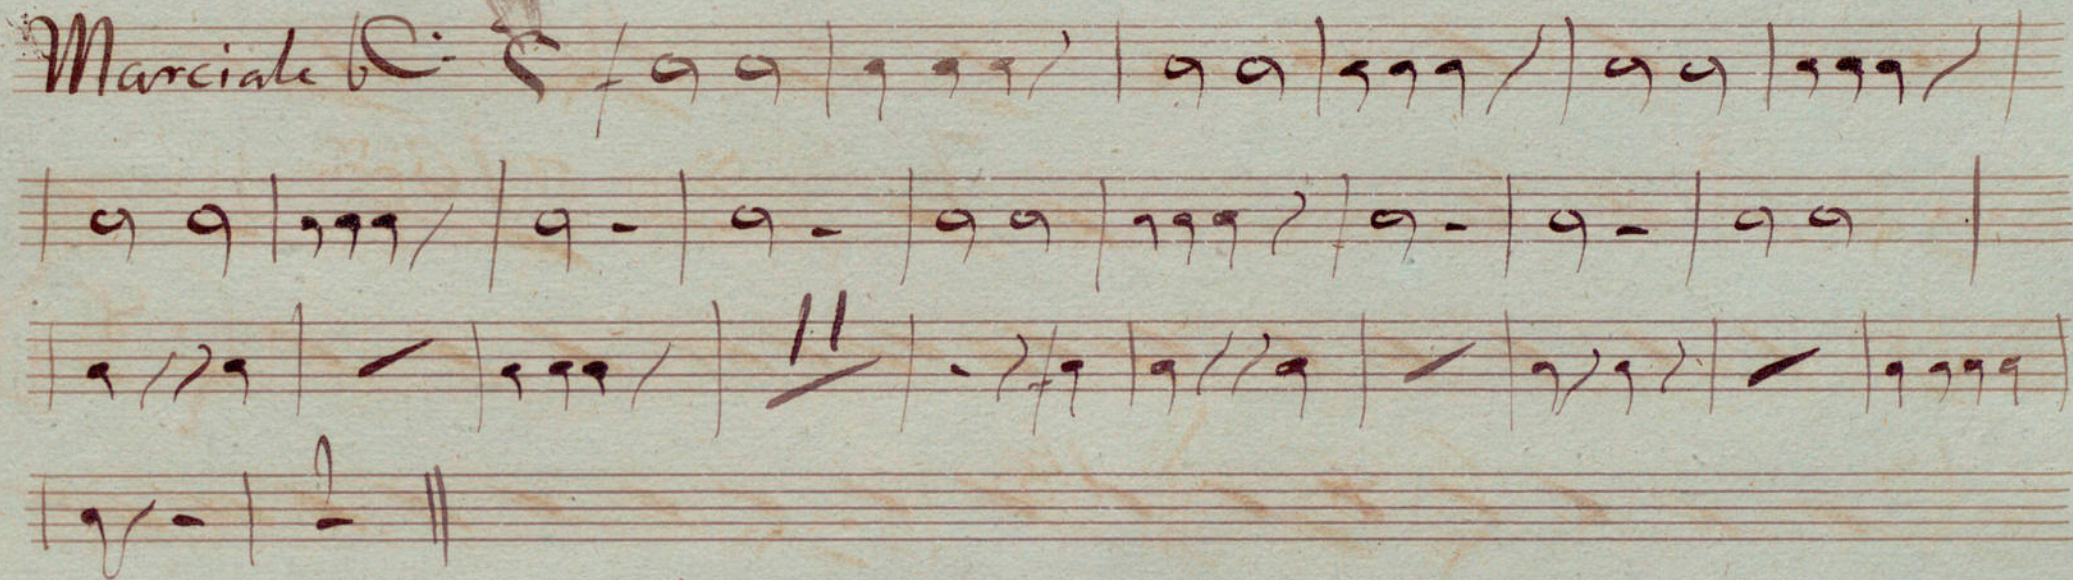 Marciale
11